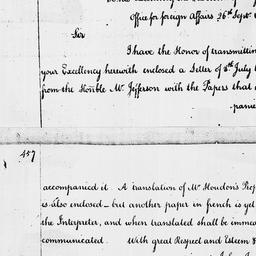 Office for foreign Affairs 26th Sept.
Sir
I have the Honor of transmitting
your Excellency herewith enclosed a Letter of 8th July
from the Honble Mr. Jefferson with the Papers that
panie
457
accompanied it. A translation of Mr Houdon's Prop
is also enclosed – but another paper in french is yet
the Interpreter, and when translated shall be immed
communicated. With great Respect and Esteem &